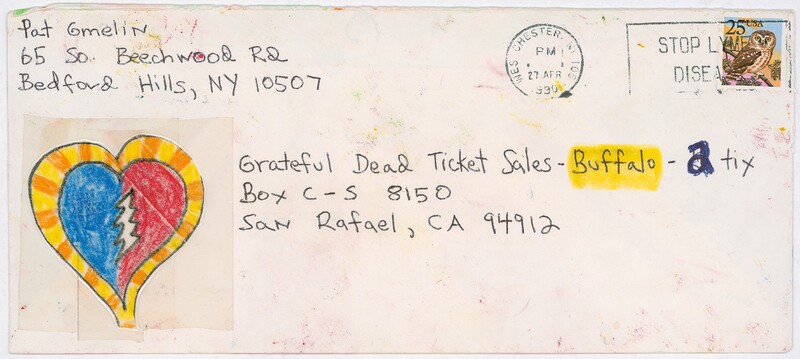 Pat Gmelin
65 So. Beechwood Rd
Bedford Hills, NY 10507
WESTCHESTER, NY 105
PM
27 APR
1990
STOP LYME
DISEA
25 USA
Grateful Dead Ticket Sales - Buffalo - 2 tix
Box C-S 8150
San Rafael, CA 94912